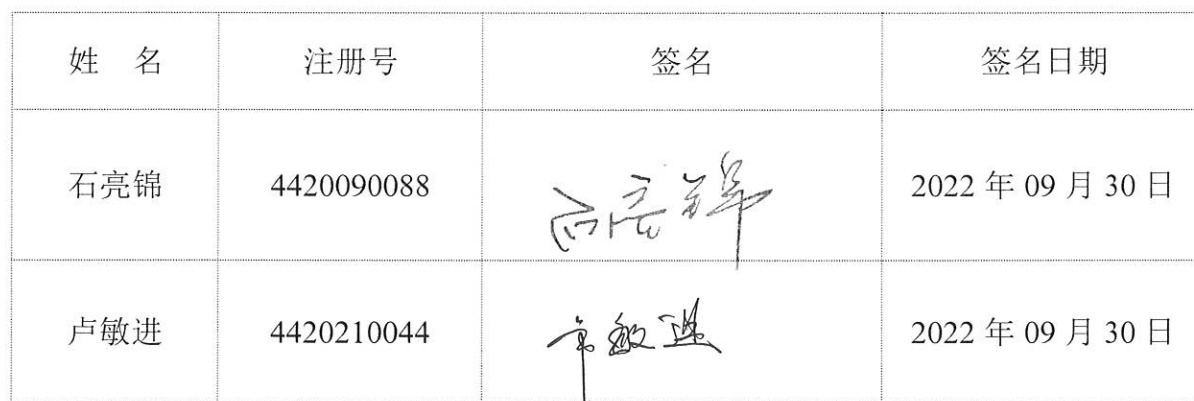 姓 名 注册号 签名 签名日期
石亮锦 4420090088 石亮锦 2022 年 09 月 30 日
卢敏进 4420210044 卢敏进 2022 年 09 月 30 日